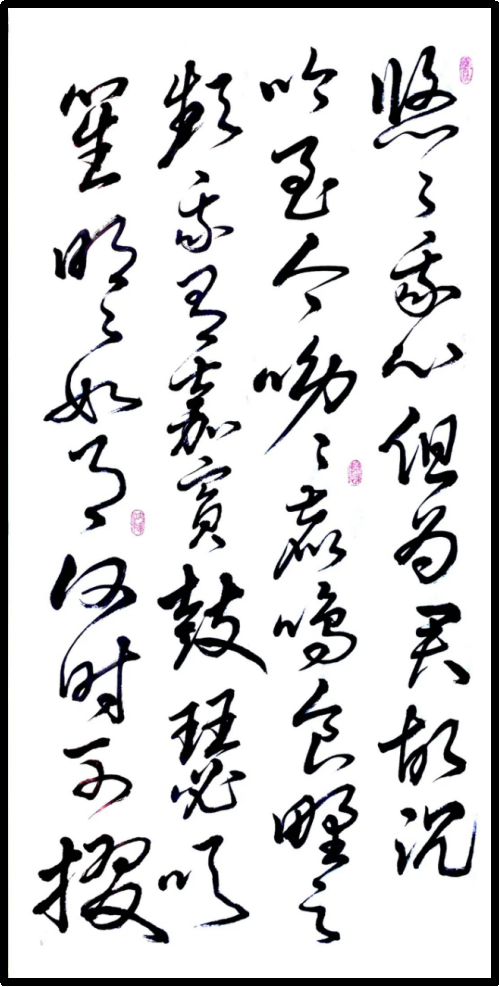 悠々我心但为君故沉
吟至今呦々鹿鸣食野之
蘋我有嘉宾鼓瑟吹
笙明々如月何时可掇